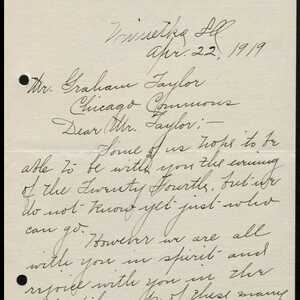 Winnetka, Ill
Apr. 22, 1919
Mr. Graham Taylor
Chicago Commons
Dear Mr. Taylor:-
Some of us hope to be
able to be with you the evening
of the Twenty Fourth, but we
do not know yet just who
can go.
However we are all
with you in spirit and
rejoice with you in the
of these many